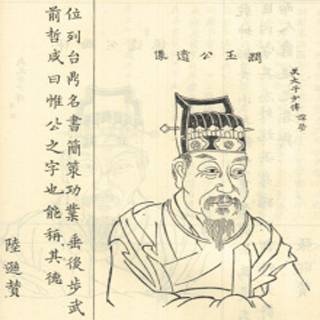 吳太子少傅 諱瑩
潤玉公遺像
位列台鼎名書簡策功業垂後步武
前哲咸曰惟公之字也能稱其德
陸遜贊